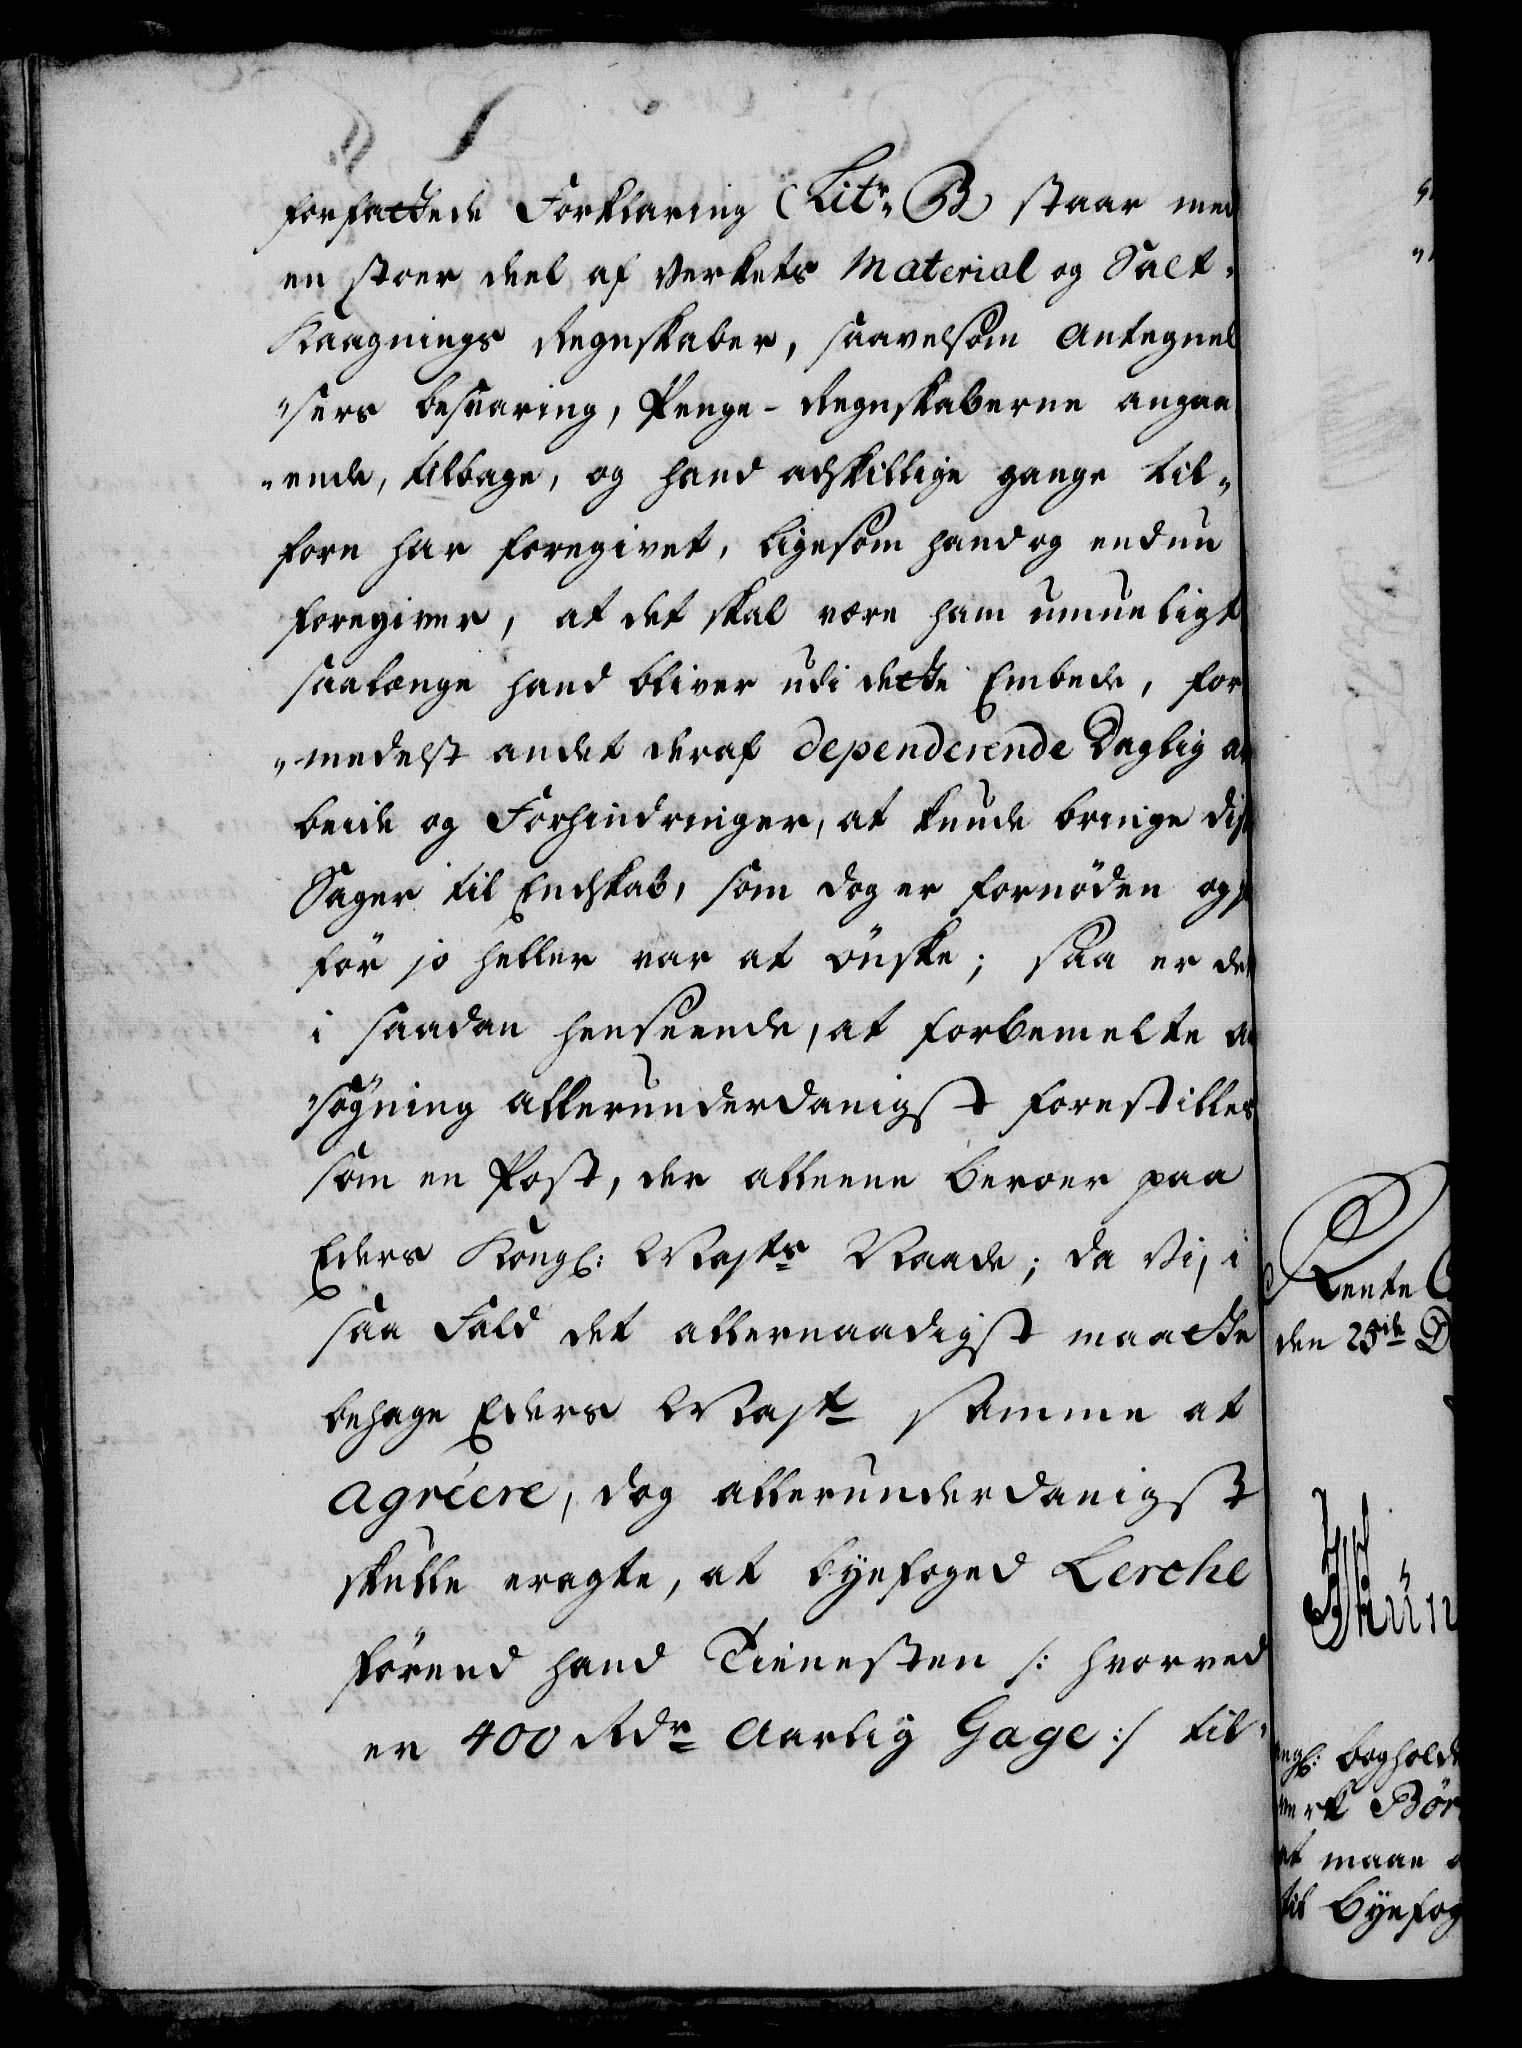 forfattede Forklaring (Litr. B) staar med
en stoer deel af Verkets Material og Salt-
Kaagnings Regnskaber, saavelsom Antegnel
"sers besvaring, Penge-Regnskaberne angaa
"ende, tilbage, og hand adskillige gange til-
forn har foregivet, ligesom hand og endnu
foregiver, at det skal være ham umueligt
saalænge hand bliver udi dette Embede, for
"medelst andet deraf dependerende Daglig ar
beide og Forhindringer, at kunde bringe disse
Sager til Endskab, som dog er fornöden og
för jo heller var at önske; saa er det
i saadan henseende, at forbemelte an
"sögning allerunderdanigst forestilles
som en Post, der alleene beroer paa
Eders Kongl: Mayts Naade; da Vi, i
saa Fald det allernaadigst maatte
behage Eders Mayt samme at
agréere, dog allerunderdanigst
skulle eragte, at byefoged Lerche
förend hand Tienesten /: hvorved
er 400 Rdr Aarlig Gage :/ til-
Rente
den 25de D
ngl: bogholde
verk Bör
at maae
til byefog